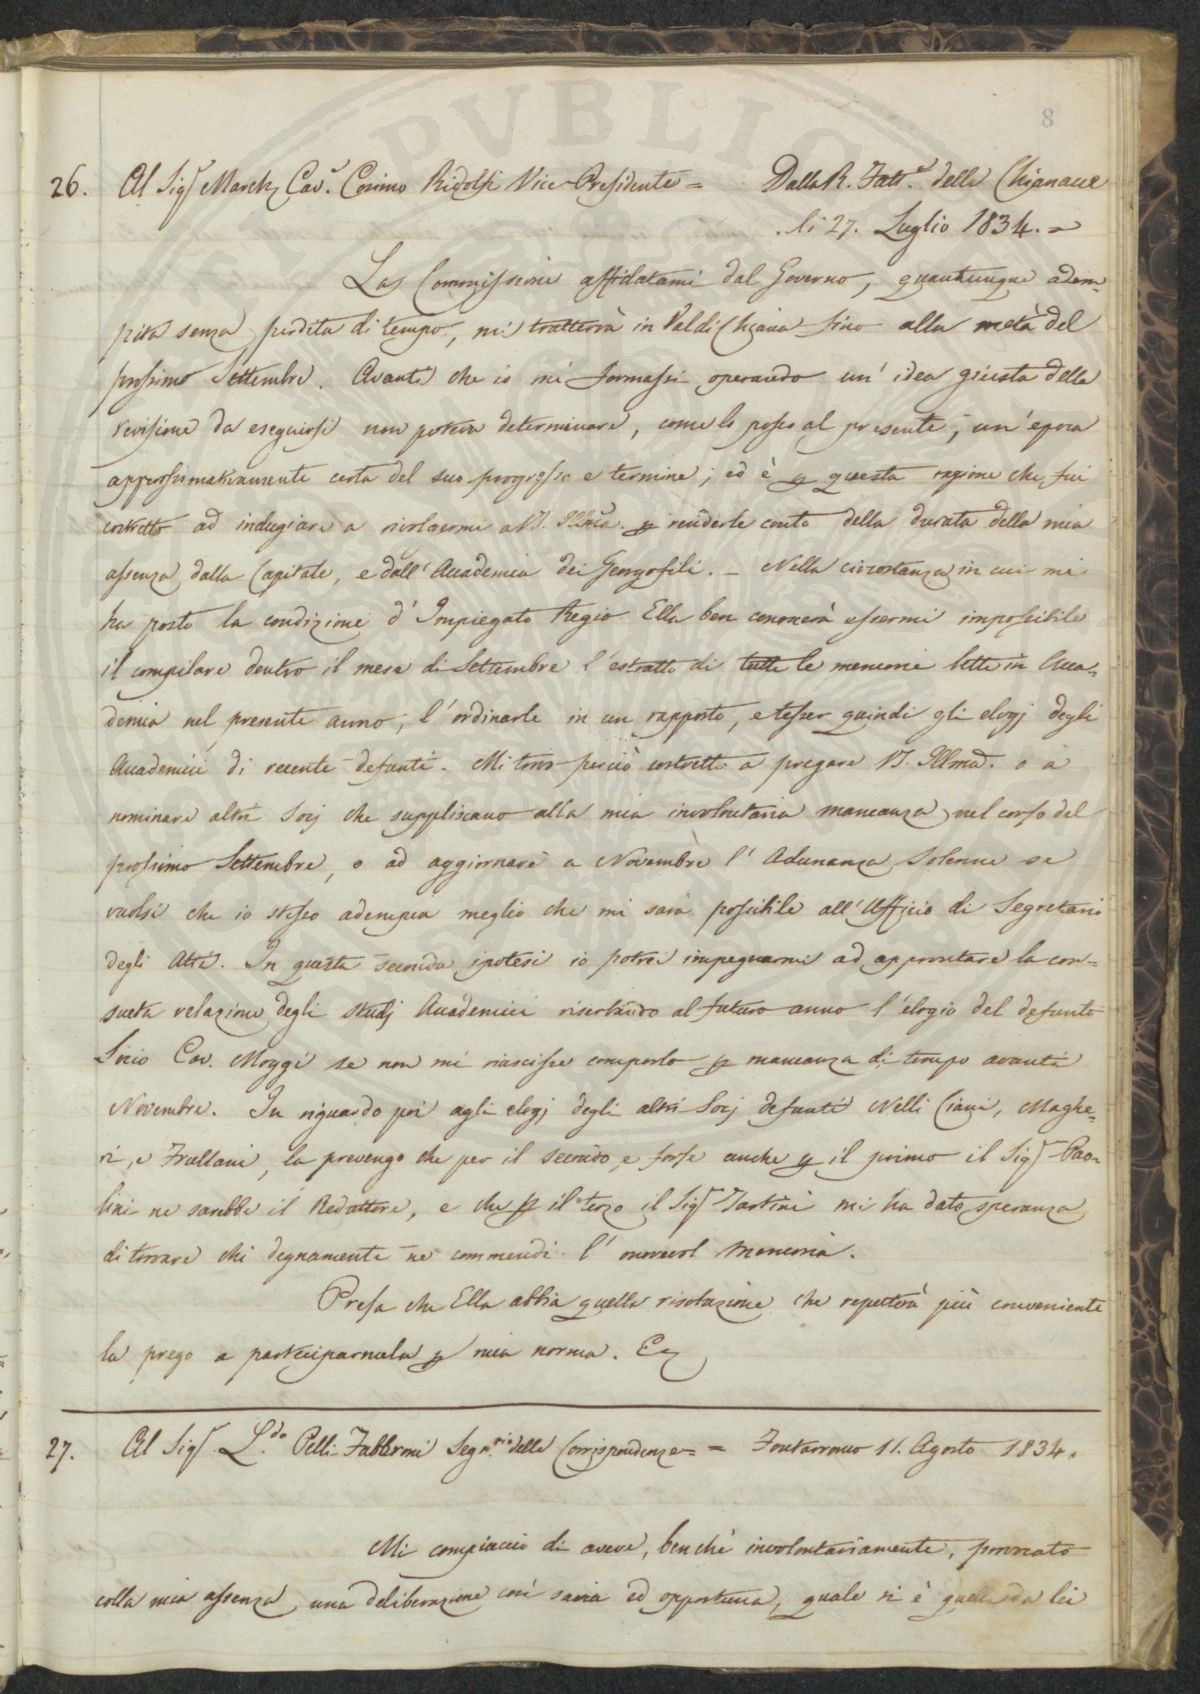 PUBLIC
8
26. Al Sigr March. Cavr. Cosimo Ridolfi Vice-Presidente = Dalla R. Fattª delle Chianacce
li 27. Luglio 1834. =
La Commissione affidatami dal Governo, quantunque adem-
pita senza perdita di tempo, mi tratterrà in Val di Chiana fino alla metà del
prossimo Settembre. Avanti che io mi formassi operando un' idea giusta della
revisione da eseguirsi non poteva determinare, come lo posso al presente, un' epoca
approssimativamente certa del suo progresso e termine; ed è p questa ragione che fui
costretto ad indugiare a rivolgermi a V.S. Illma. p renderle conto della durata della mia
assenza dalla Capitale, e dall' Accademia dei Georgofili. _ Nella circostanza in cui mi
ha posto la condizione d' Impiegato Regio Ella ben conoscerà essermi impossibile
il compilare dentro il mese di Settembre l' estratto di tutte le memorie lette in Acca-
demia nel presente anno; l' ordinarle in un rapporto, e tesser quindi gli elogj degli
Accademici di recente defunti. Mi trovo perciò costretto a pregare V.S. Illma. o a
nominare altri Socj che suppliscano alla mia involontaria mancanza nel corso del
prossimo Settembre, o ad aggiornare a Novembre l' Adunanza Solenne se
vuolsi che io stesso adempia meglio che mi sarà possibile all' Ufficio di Segretario
degli Atti. In questa seconda ipotesi io potrei impegnarmi ad approntare la con-
sueta relazione degli studj Accademici riserbando al futuro anno l' elogio del defunto
Socio Cav. Moggi se non mi riuscisse comporlo p mancanza di tempo avanti
Novembre. In riguardo poi agli elogj degli altri Socj defunti Nelli Ciani, Maghe-
ri, e Frullani, la prevengo che per il secondo, e forse anche p il primo il Sigr Pao-
lini ne sarebbe il Redattore, e che p il terzo il Sigr Tartini mi ha dato speranza
di trovare chi degnamente ne commendi l' onorevol memoria.
Presa che Ella abbia quella risoluzione che reputerà più conveniente
la prego a parteciparmela p mia norma. Ec
27. Al Sigr. L.do Pelli Fabbroni Segr.rio delle Corrispondenze = = Fontarronco 11. Agosto 1834.
Mi compiaccio di avere, benchè involontariamente, provocato
colla mia assenza una deliberazione così savia ed opportuna, quale si è quella da lei